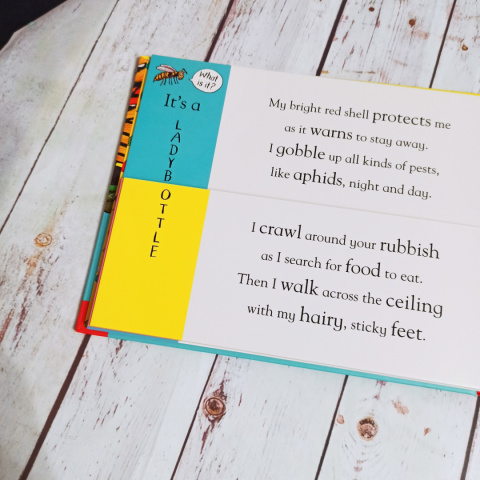 What
is it?
It's a
LADYB
OTTLE
My bright red shell protects me
as it warns to stay away.
I gobble up all kinds of pests,
like aphids, night and day.
I crawl around your rubbish
as I search for food to eat.
Then I walk across the ceiling
with my hairy, sticky feet.